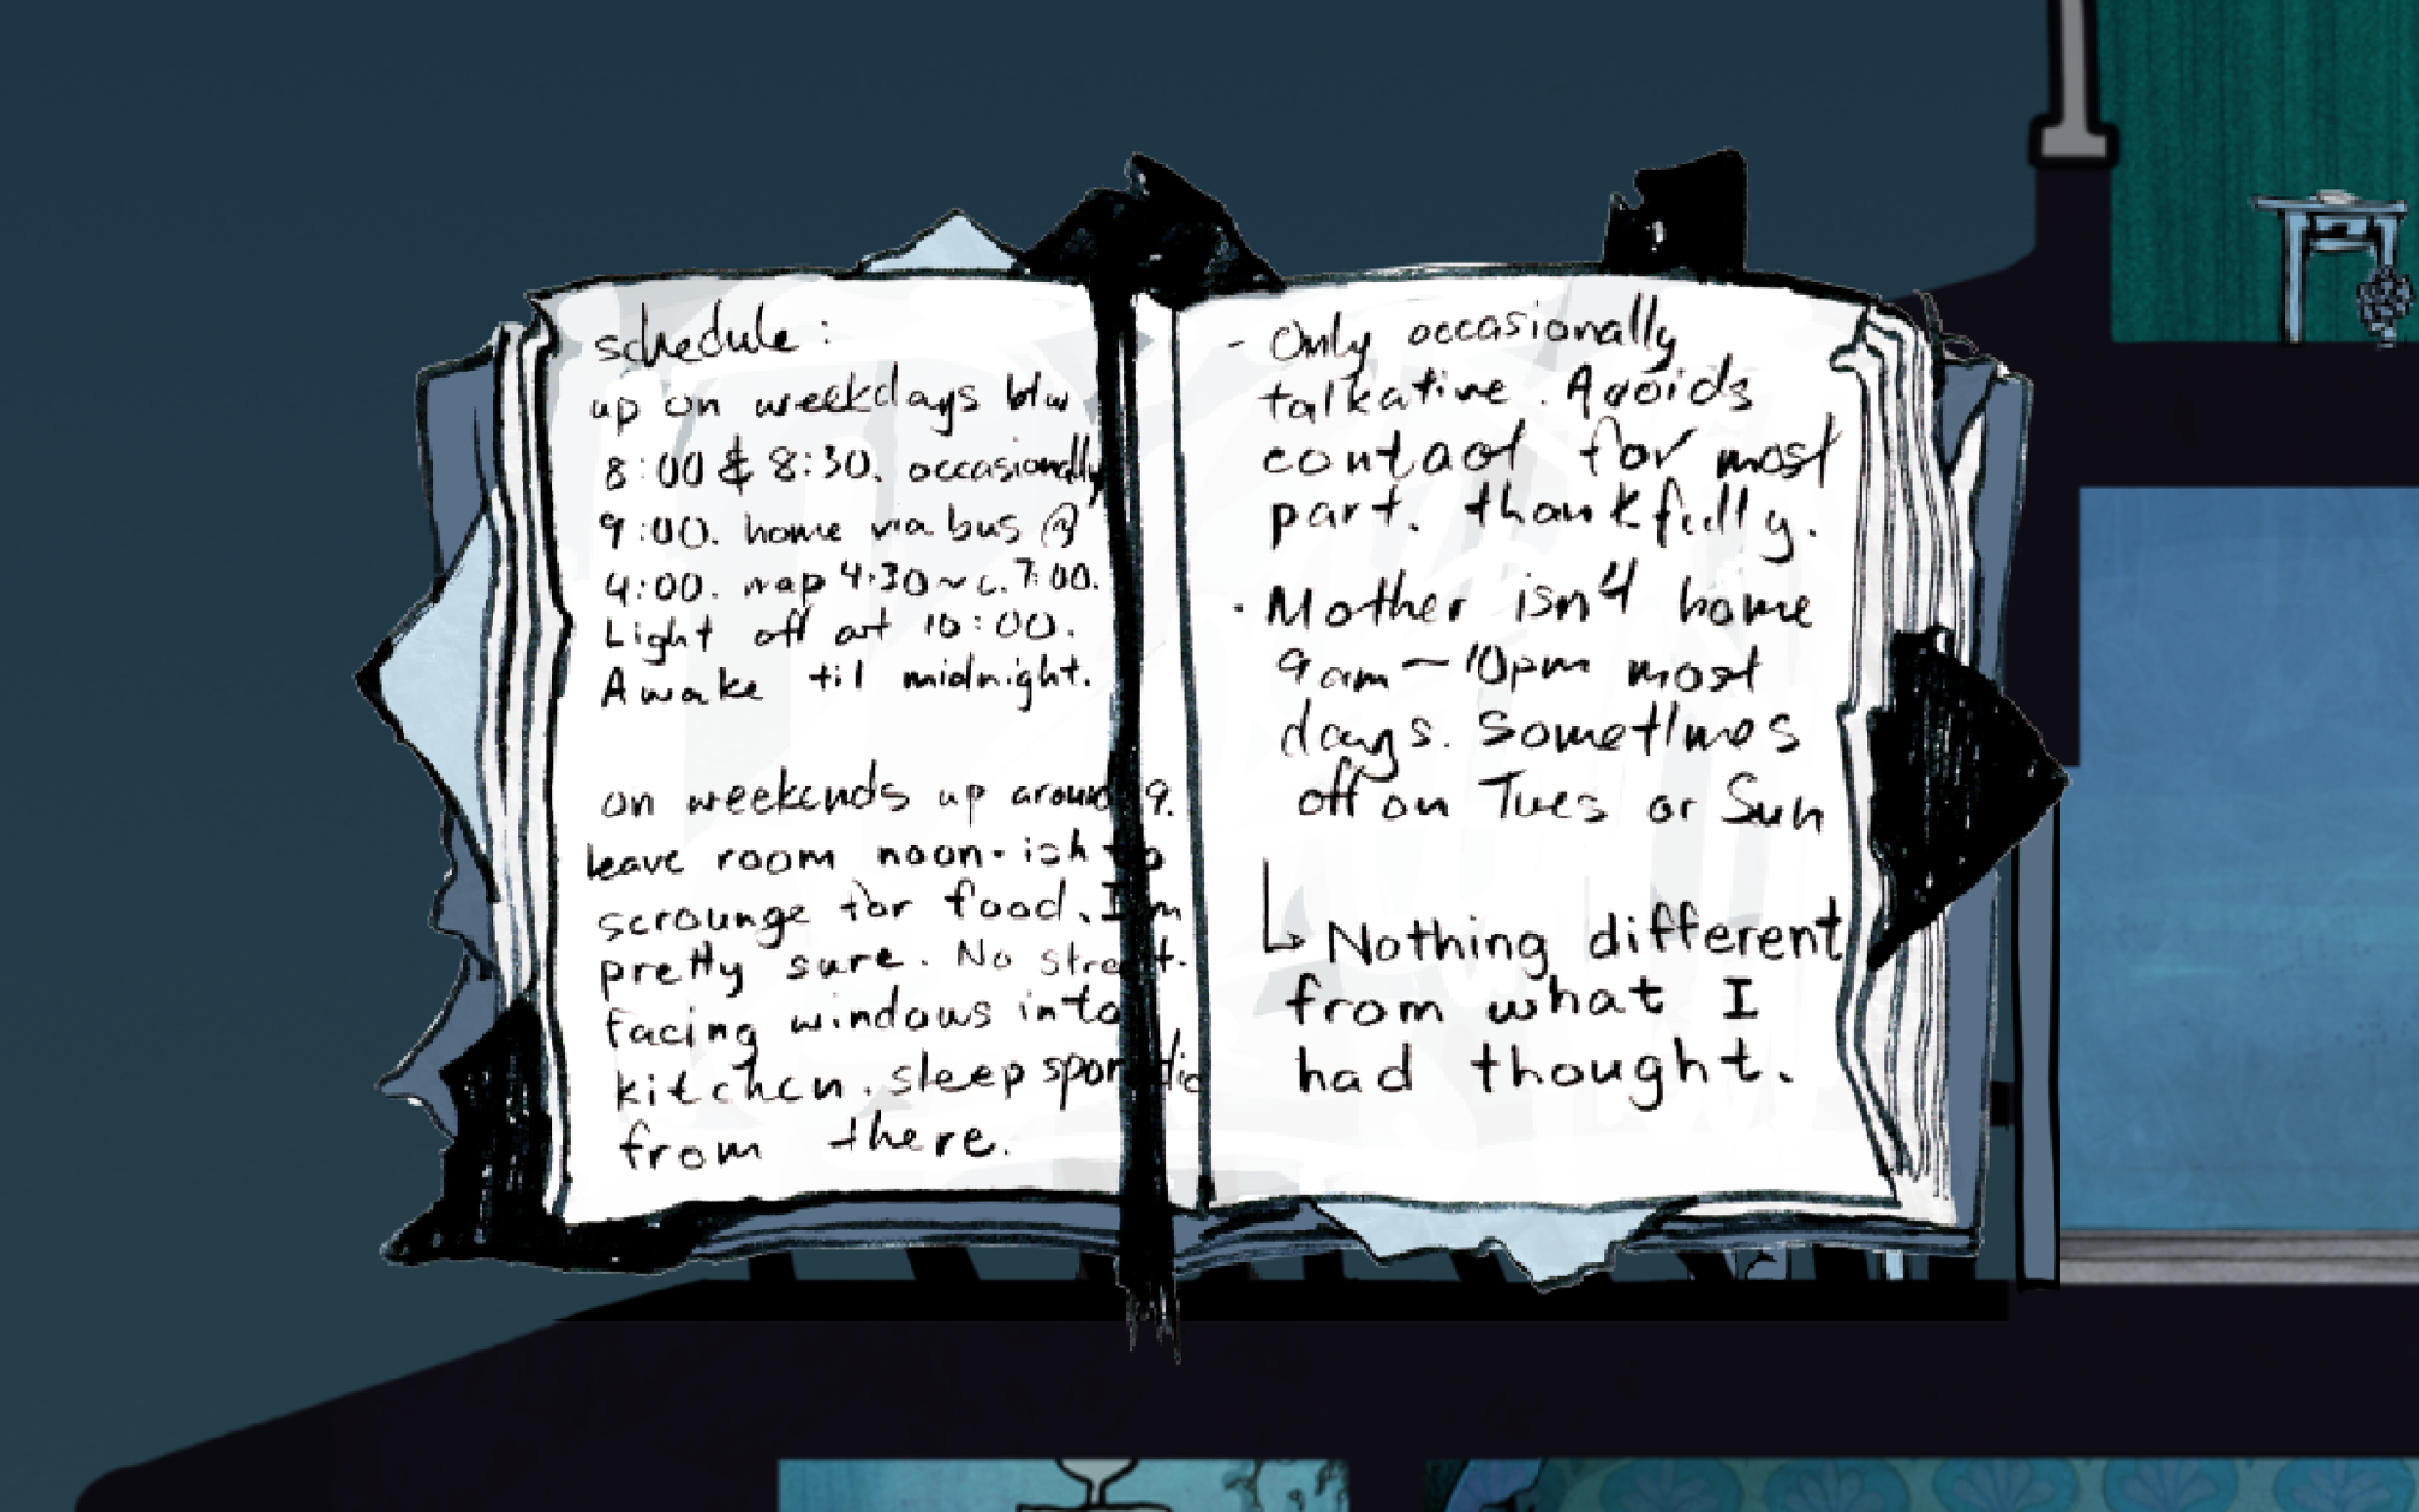 schedule:
up on weekdays btw
8:00 & 8:30. occasionally
9:00. home via bus @
4:00. nap 4:30~c. 7:00.
Light off at 10:00.
Awake til midnight.
on weekends up around 9.
leave room noon-ish to
scrounge for food. I'm
pretty sure. No street-
facing windows into
kitchen. sleep sporadic
from there.
- Only occasionally
talkative. Avoids
contact for most
part. thankfully.
· Mother isn't home
9am~10pm most
days. Sometimes
off on Tues or Sun
↳ Nothing different
from what I
had thought.